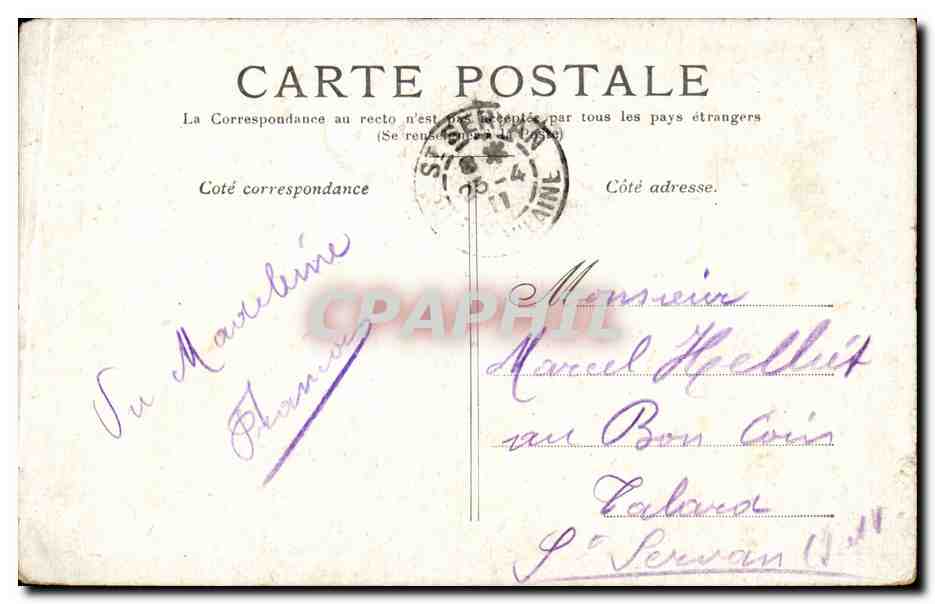 CARTE POSTALE
La Correspondance au recto n'est pas acceptée par tous les pays étrangers
(Se renseigner à la Poste)
Coté correspondance
Côté adresse.
ST SERVAN
25-4
11
Vu Madeleine
CPAPHIL
Monsieur
Marcel Helliét
au Bon Coin
Talard
St Servan